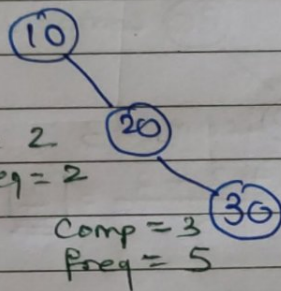 10
20
2
= 2
30
Comp = 3
freq = 5